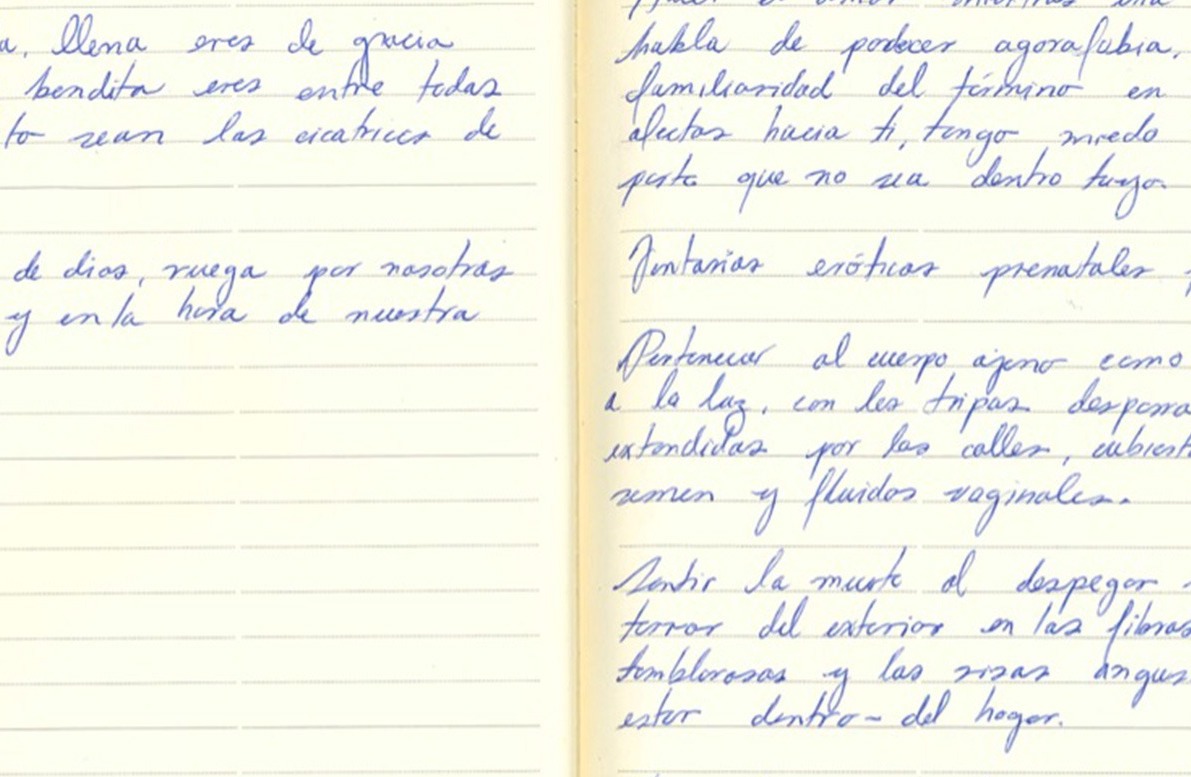 a, llena eres de gracia
bendita eres entre todas
to sean las cicatrices de
de dios, ruega por nosotras
y en la hora de nuestra
habla de padecer agorafobia.
familiaridad del término en
afectos hacia ti, tengo miedo
parte que no sea dentro tuyo.
Fantasías eróticas prenatales
Pertenecer al cuerpo ajeno como
a la luz, con las tripas desparra
extendidas por las calles, cubiert
semen y fluidos vaginales.
Sentir la muerte al despegar
terror del exterior en las fibras
temblorosas y las risas angus
estar dentro - del hogar.